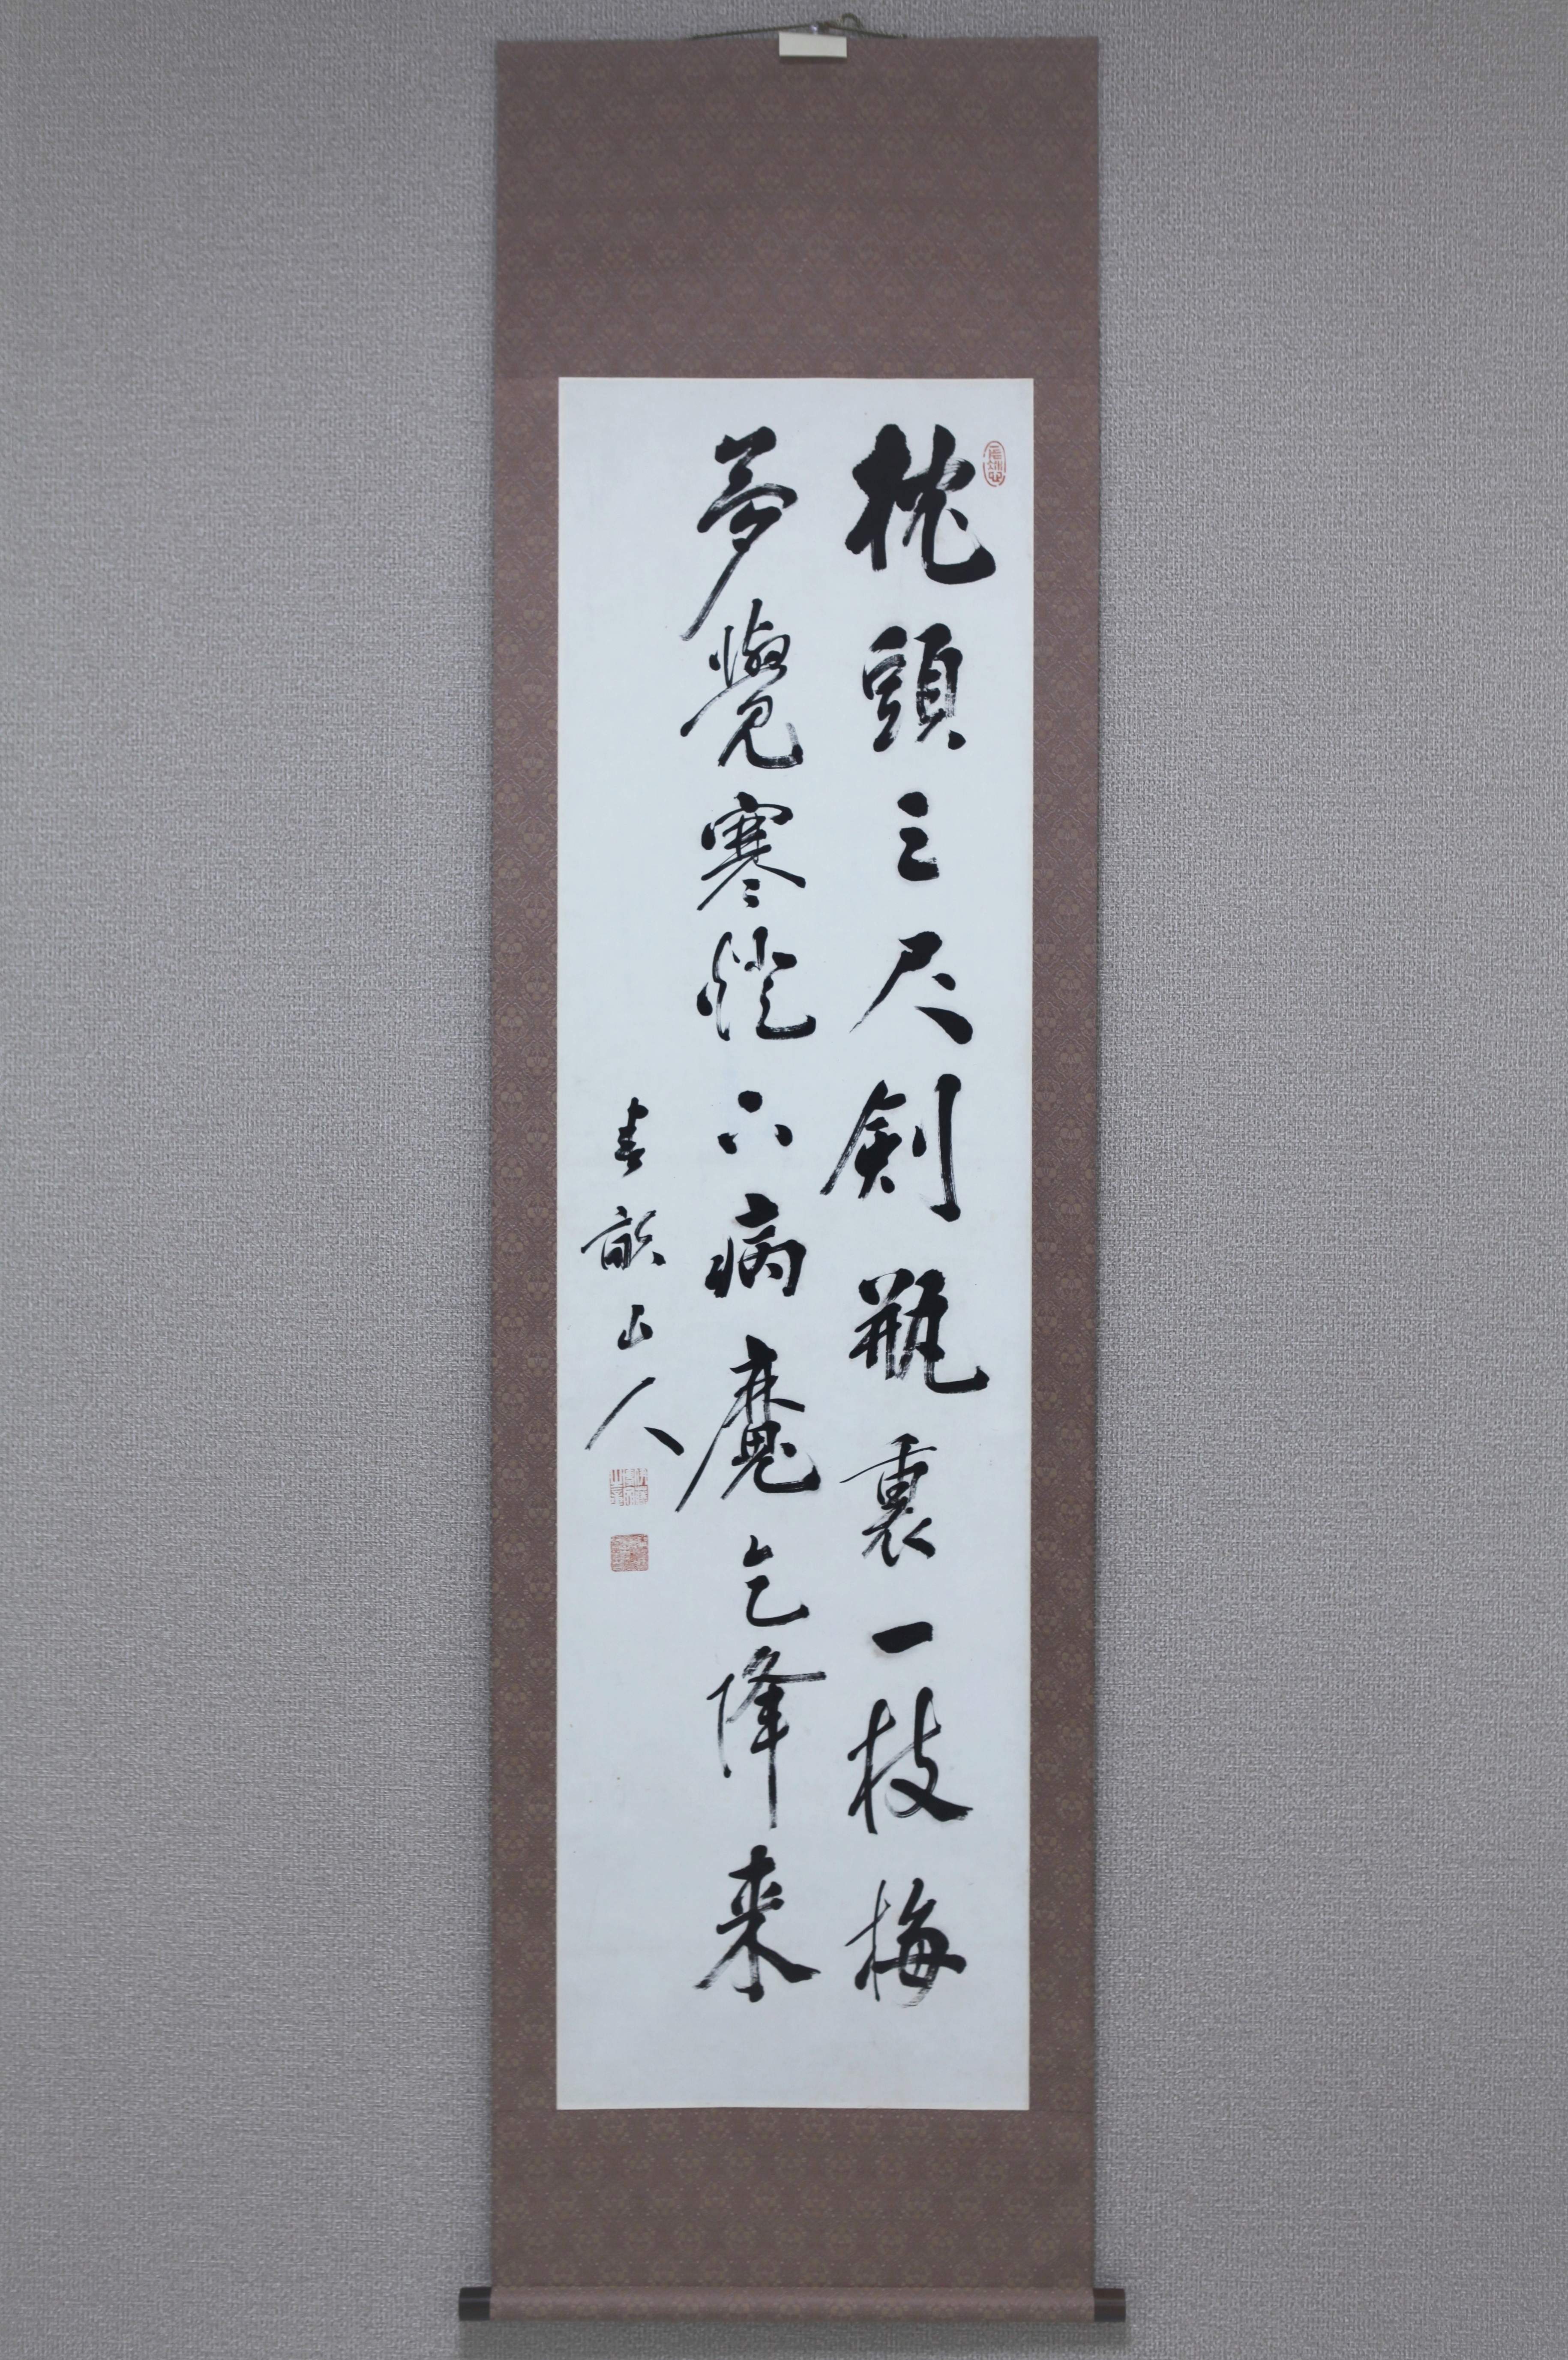 枕頭三尺劍瓶裏一枝梅
夢覺寒燈下病魔乞降来
春畝山人